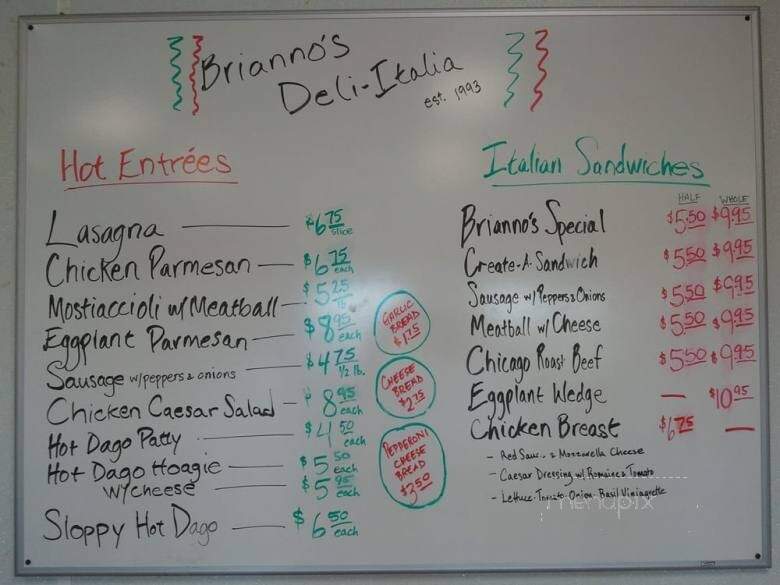 Brianno's
Deli-Italia
est. 1993
Hot Entrées
Lasagna $6.75 slice
Chicken Parmesan $6.75 each
Mostiaccioli w/ Meatball $5.25 lb
Eggplant Parmesan $8.95 each
Sausage w/peppers & onions $4.75 1/2 lb.
Chicken Caesar Salad $8.95 each
Hot Dago Patty $4.50 each
Hot Dago Hoagie $5.50 each
w/cheese $5.95 each
Sloppy Hot Dago $6.50 each
GARLIC
BREAD
$1.75
CHEESE
BREAD
$2.75
PEPPERONI
CHEESE
BREAD
$3.50
Italian Sandwiches
HALF WHOLE
Brianno's Special $5.50 $9.95
Create-A-Sandwich $5.50 $9.95
Sausage w/ Peppers & Onions $5.50 $9.95
Meatball w/ Cheese $5.50 $9.95
Chicago Roast Beef $5.50 $9.95
Eggplant Wedge — $10.95
Chicken Breast $6.75 —
- Red Sauce & Mozzarella Cheese
- Caesar Dressing w/ Romaine & Tomato
- Lettuce-Tomato-Onion-Basil Viniagrette
menupix